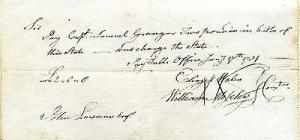 Sir
Pay Capt. Samuel Granger Two pounds in bills of
this State — and charge the State.
Pay Table Office Jany 1781
£2.0.0
William Moseley
John Lawrence Esqr